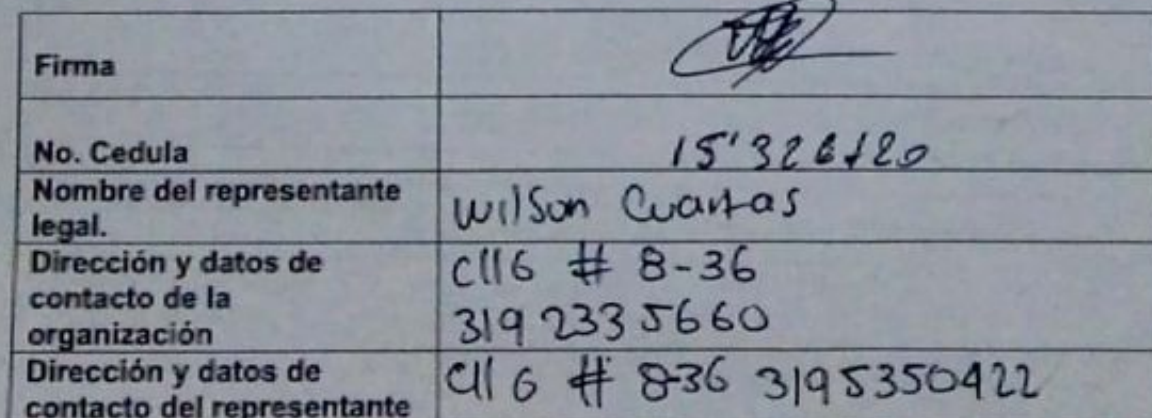 Firma
No. Cedula 15'326120
Nombre del representante
legal.
Wilson Cuartas
Dirección y datos de
contacto de la
organización
Cll6 # 8-36
319 2335660
Dirección y datos de
contacto del representante
Cll 6 # 8-36 3195350422